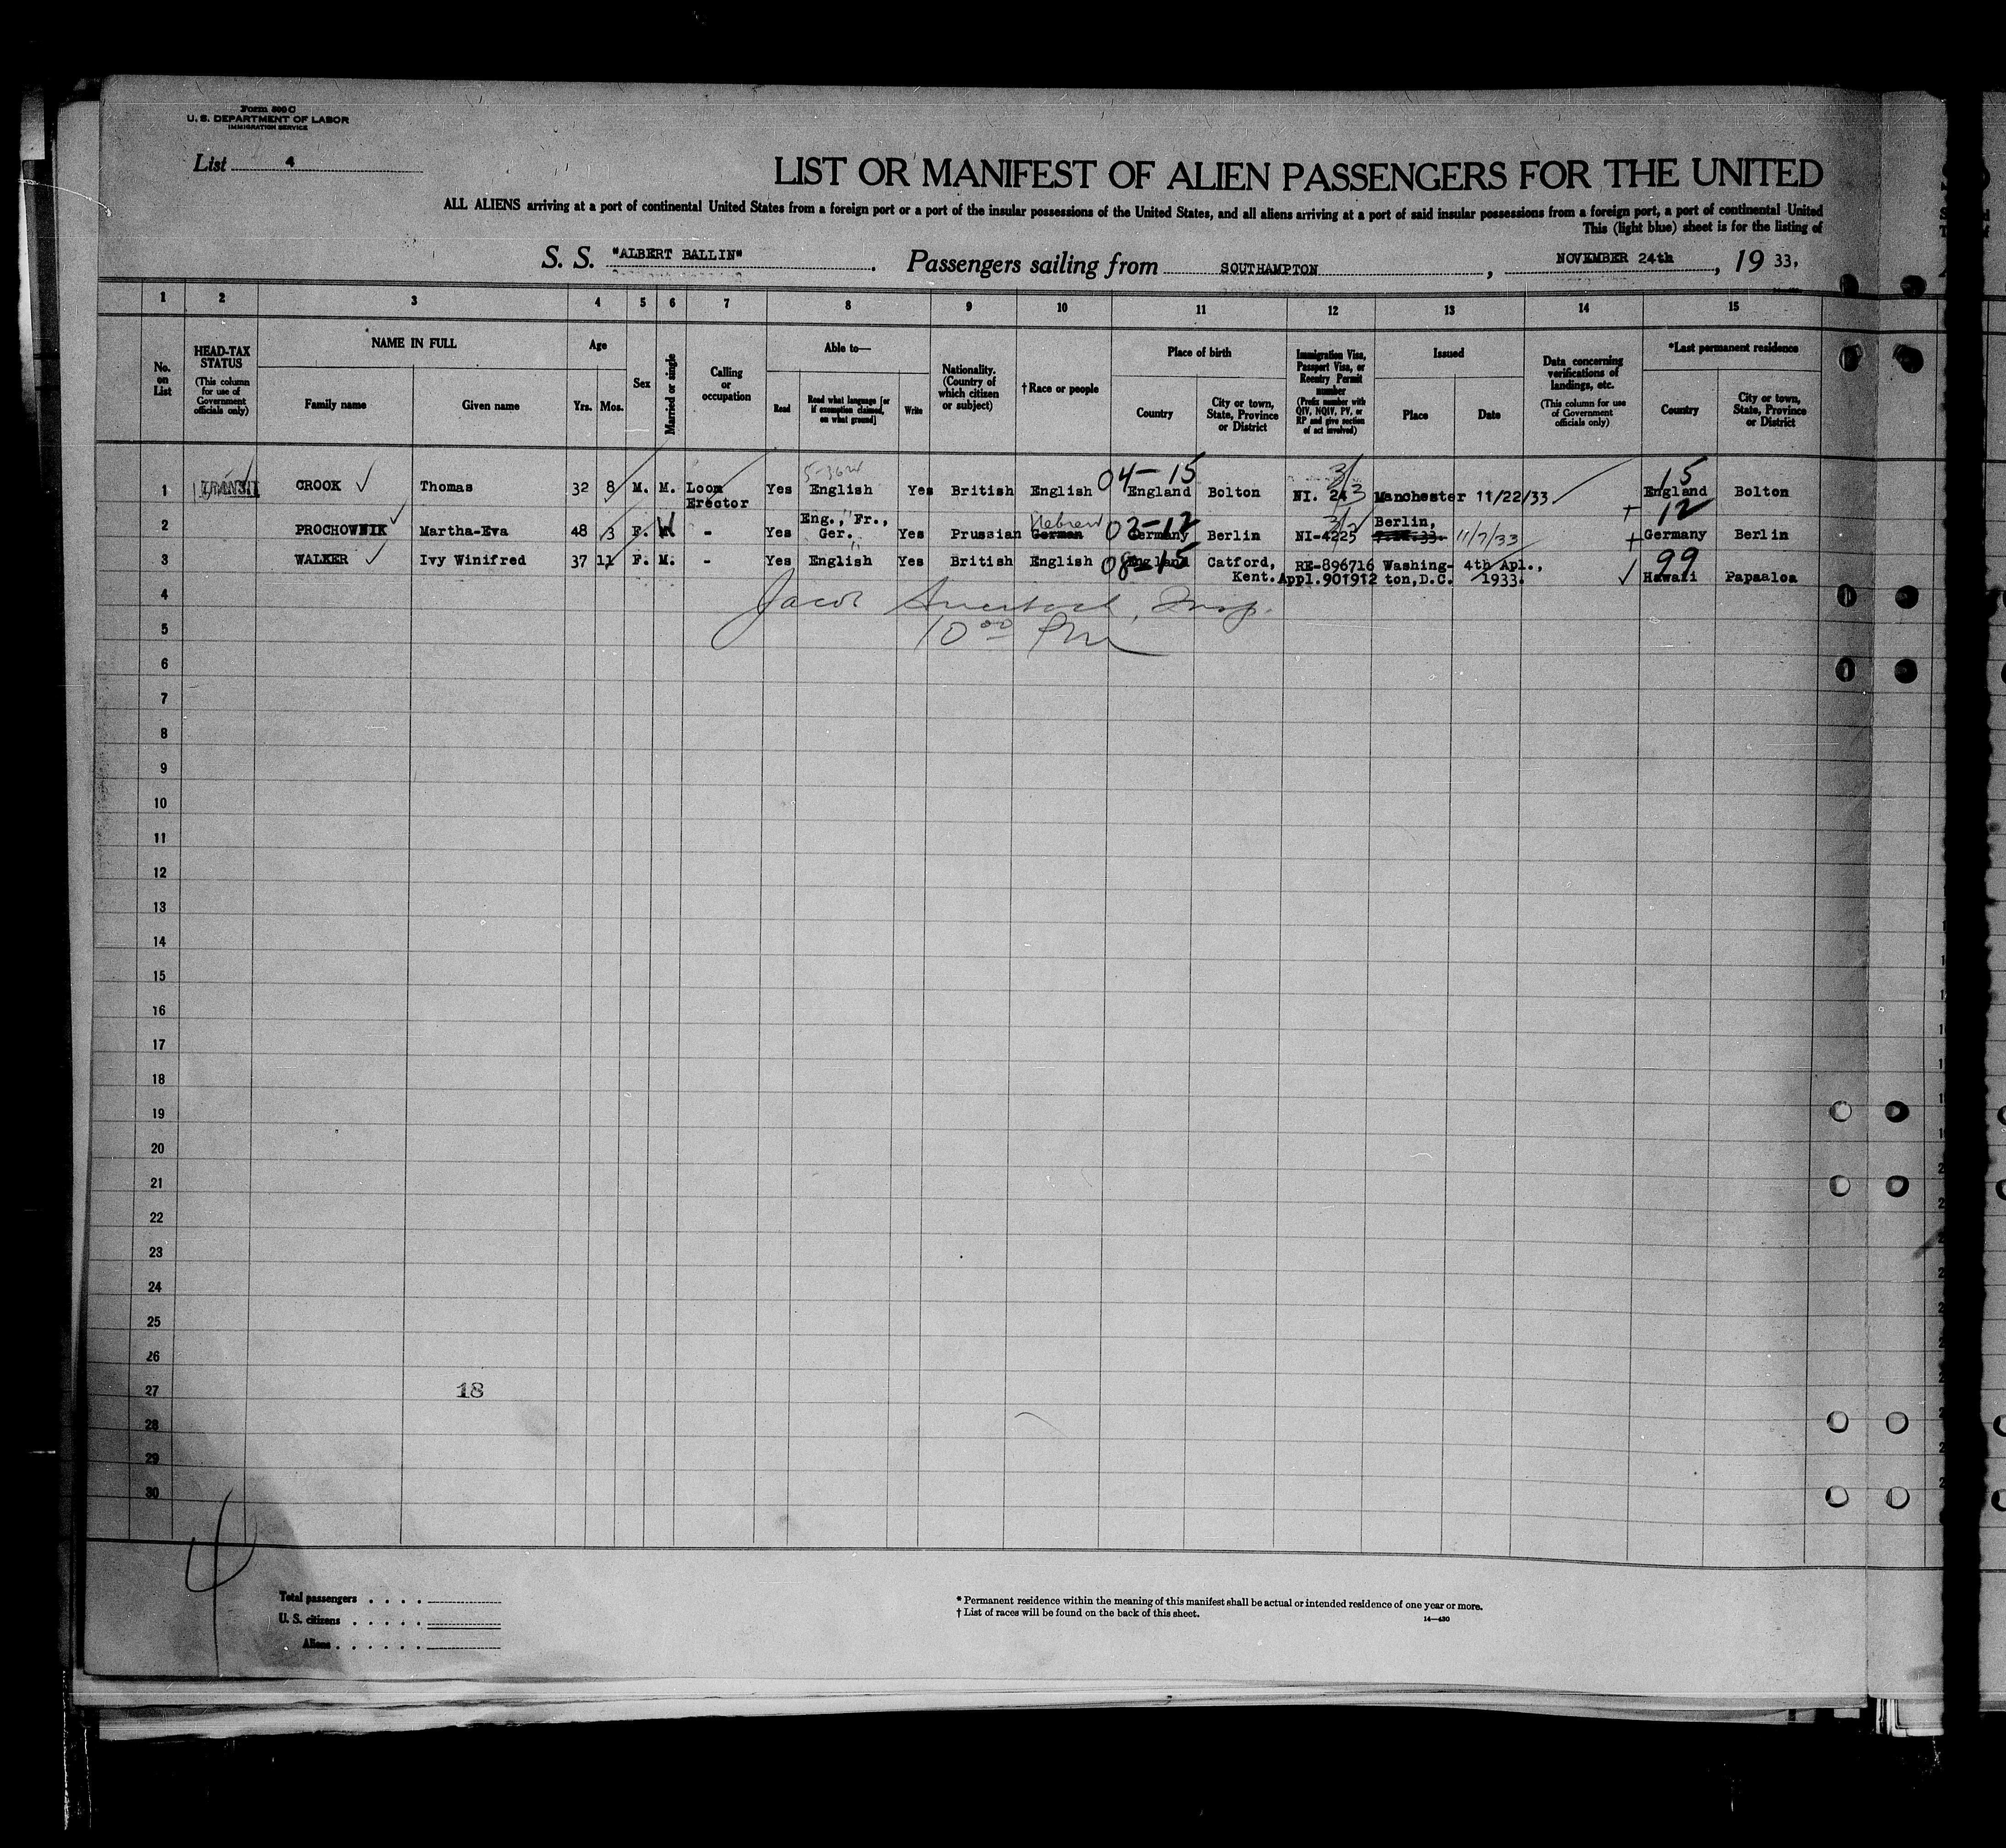 Form 500 C
U. S. DEPARTMENT OF LABOR
IMMIGRATION SERVICE
List 4
LIST OR MANIFEST OF ALIEN PASSENGERS FOR THE UNITED
ALL ALIENS arriving at a port of continental United States from a foreign port or a port of the insular possessions of the United States, and all aliens arriving at a port of said insular possessions from a foreign port, a port of continental United
This (light blue) sheet is for the listing of
S. S. "ALBERT BALLIN". Passengers sailing from SOUTHAMPTON, NOVEMBER 24th, 1933,
1 2 3 4 5 6 7 8 9 10 11 12 13 14 15
No. on List
HEAD-TAX STATUS (This column for use of Government officials only)
NAME IN FULL
Family name Given name
Age
Yrs. Mos.
Sex
Married or single
Calling or occupation
Able to—
Read Read what language [or if exemption claimed, on what ground] Write
Nationality. (Country of which citizen or subject)
†Race or people
Place of birth
Country City or town, State, Province or District
Immigration Visa, Passport Visa, or Reentry Permit number (Prefix number with QIV, NQIV, PV, or RP and give section of act involved)
Issued
Place Date
Data concerning verifications of landings, etc. (This column for use of Government officials only)
*Last permanent residence
Country City or town, State, Province or District
04-15 3/3 15
1 TRANSIT CROOK ✓ Thomas 32 8 M. M. Loom Erector Yes English Yes British English England Bolton NI. 243 Manchester 11/22/33 England Bolton
Hebrew 02-12 3/2 12
2 PROCHOWNIK ✓ Martha-Eva 48 3 F. W Yes Eng., Fr., Ger. Yes Prussian German Germany Berlin NI-4225 Berlin, 11/7/33 Germany Berlin
08-15 99
3 WALKER ✓ Ivy Winifred 37 11 F. M. - Yes English Yes British English England Catford, Kent. RE-896716 Appl.901912 Washington, D.C. 4th Apl., 1933. ✓ Hawaii Papaaloa
4 Jacob Insp.
5 10 00 Pm
6
7
8
9
10
11
12
13
14
15
16
17
18
19
20
21
22
23
24
25
26
27 18
28
29
30
4
Total passengers
U. S. citizens
Aliens
* Permanent residence within the meaning of this manifest shall be actual or intended residence of one year or more.
† List of races will be found on the back of this sheet.
14—430